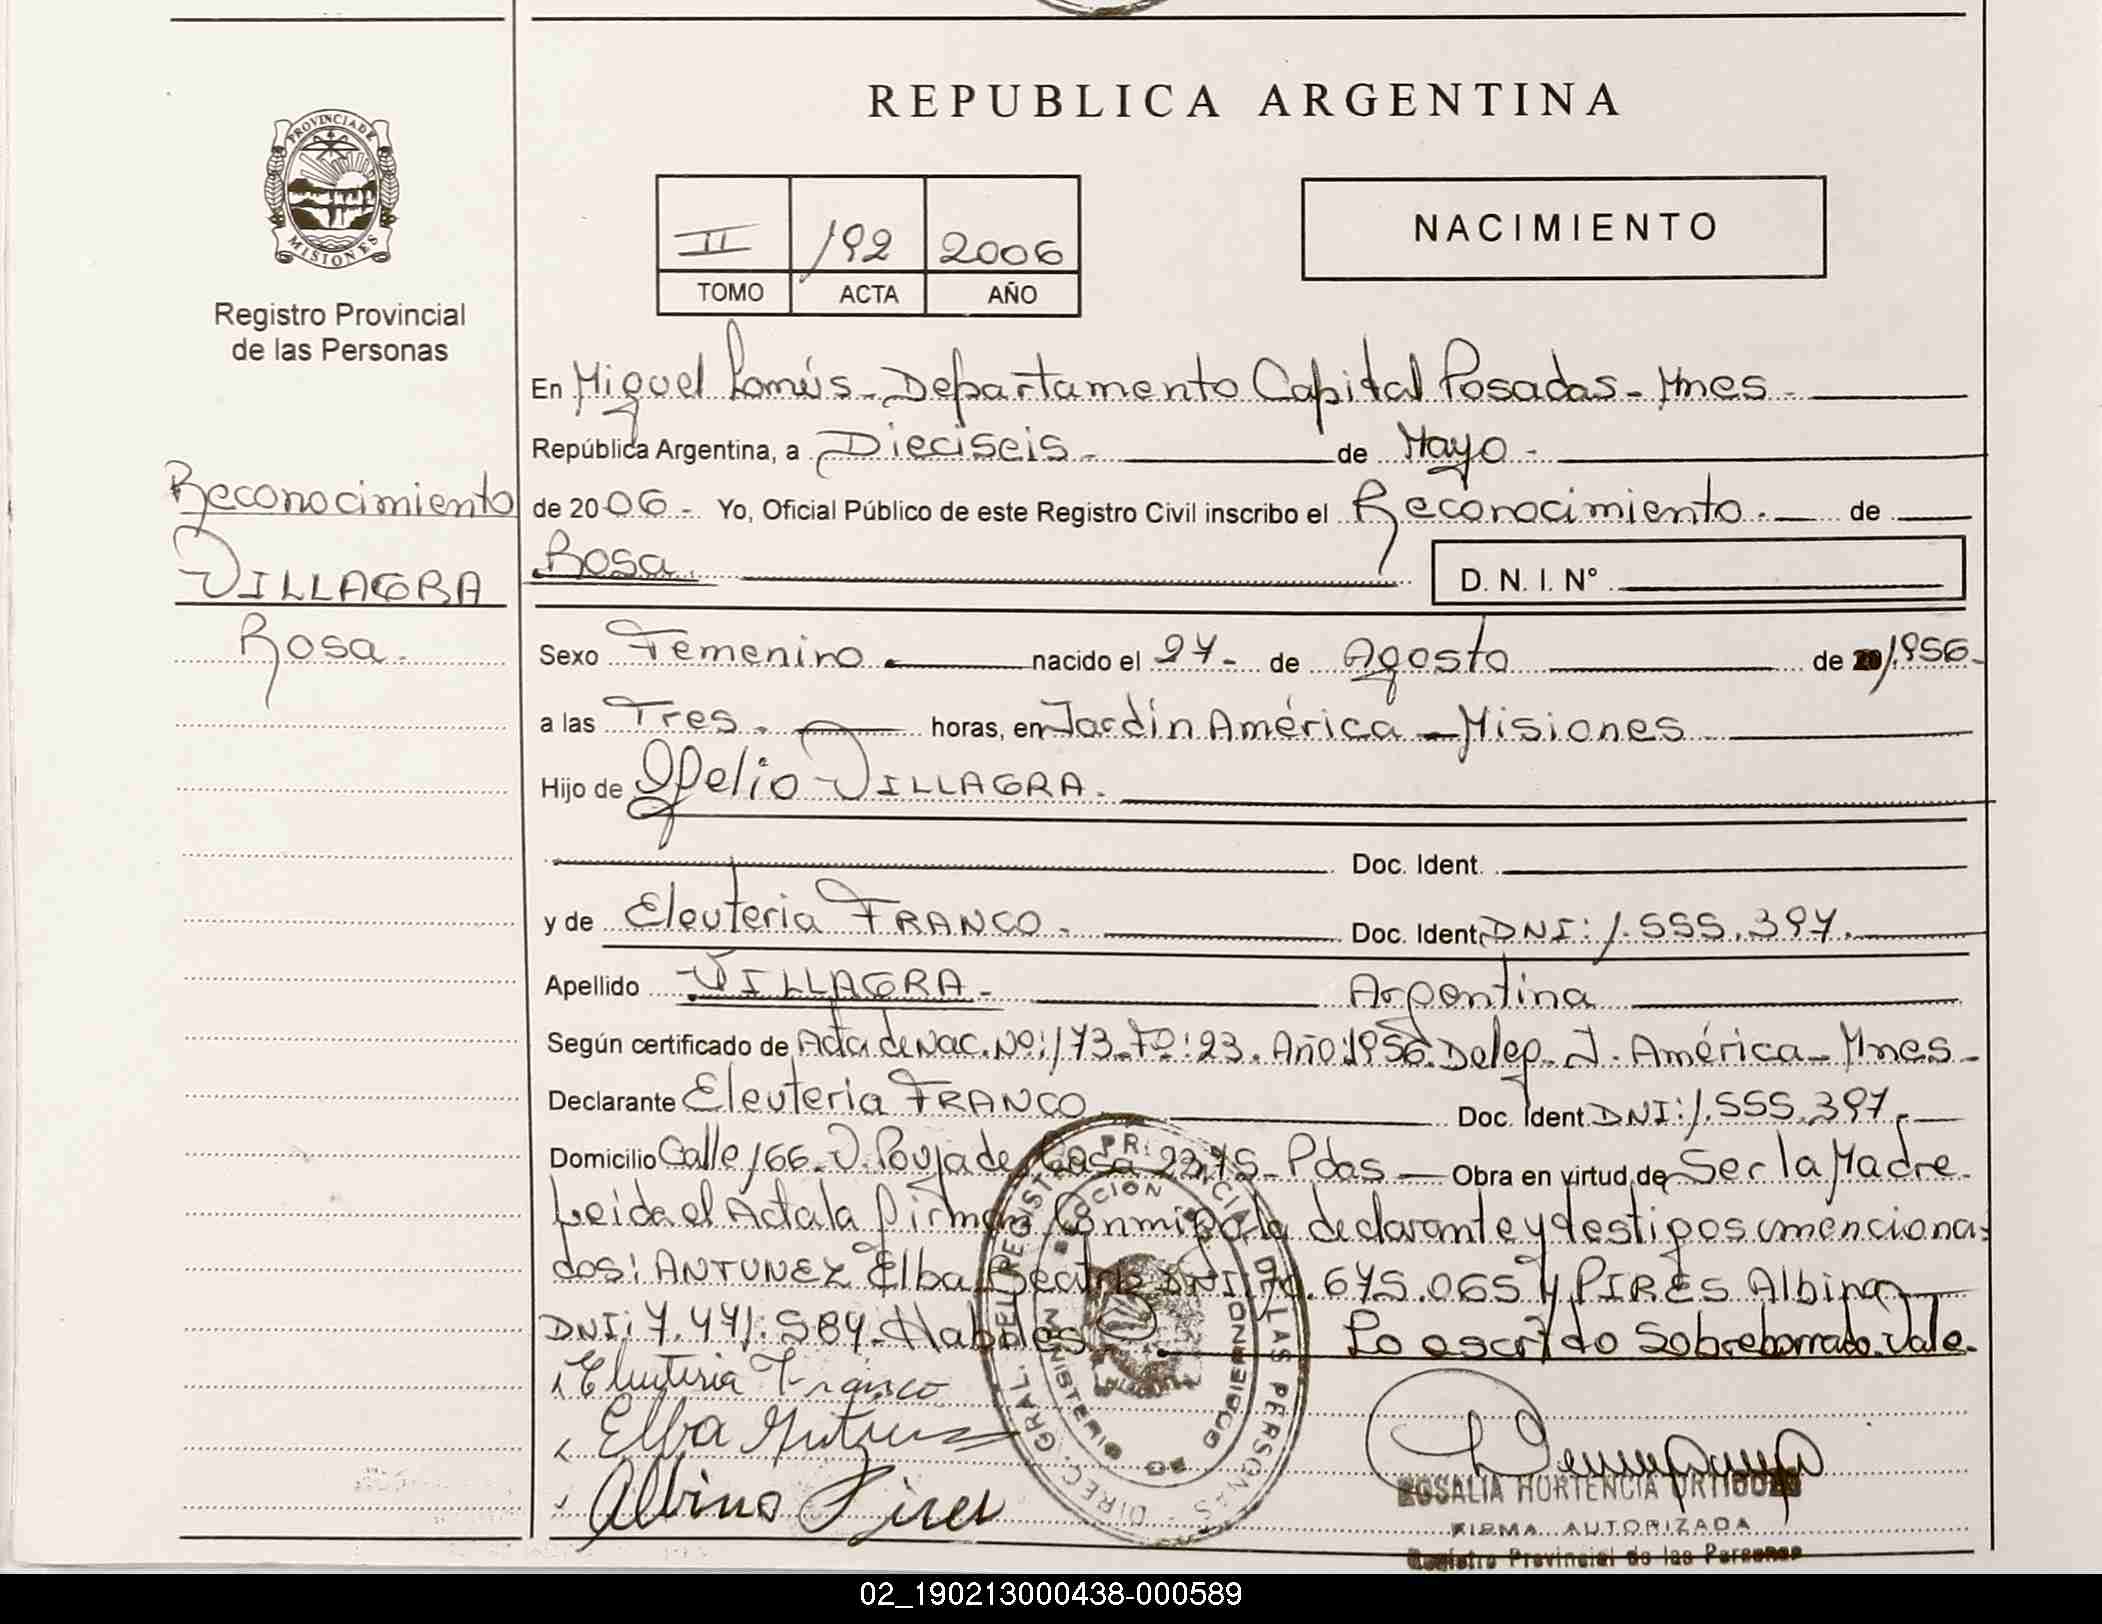 REPUBLICA ARGENTINA
PROVINCIA DE
MISIONES
Registro Provincial
de las Personas
II 192 2006
TOMO ACTA AÑO
NACIMIENTO
En Miguel Lanús - Departamento Capital Posadas - Mnes -
República Argentina, a Dieciseis - de Mayo -
de 2006 - Yo, Oficial Público de este Registro Civil inscribo el Reconocimiento. de
Rosa. D. N. I. N°
Reconocimiento
VILLAGRA
Rosa.
Sexo Femenino nacido el 27 - de Agosto de 1956 -
a las Tres. horas, en Jardín América - Misiones
Hijo de Ofelio VILLAGRA.
Doc. Ident.
y de Eleuteria FRANCO - Doc. Ident. DNI: 1.555.397.
Apellido VILLAGRA - Argentina
Según certificado de Acta de Nac. No: 173. To: 23. Año: 1956. Deleg. J. América - Mnes -
Declarante Eleuteria FRANCO Doc. Ident. DNI: 1.555.397 -
Domicilio Calle 166. Casa 2275 - Pdas - Obra en virtud de Ser la Madre.
Leida el Acta la firman Conmigo la declarante y testigos menciona-
dos: ANTUNEZ Elba Beatriz DNI .675.065 y PIRES Albino
DNI: 7.471.584 - Habiles Lo escrito Sobreborrado. Vale.
Eleuteria Franco
Elba
Albino Pires
DIREC. GRAL. DEL REGISTRO PROVINCIAL DE LAS PERSONAS
MINISTERIO DE GOBIERNO
ROSALIA HORTENCIA
FIRMA AUTORIZADA
Registro Provincial de las Personas
02_190213000438-000589